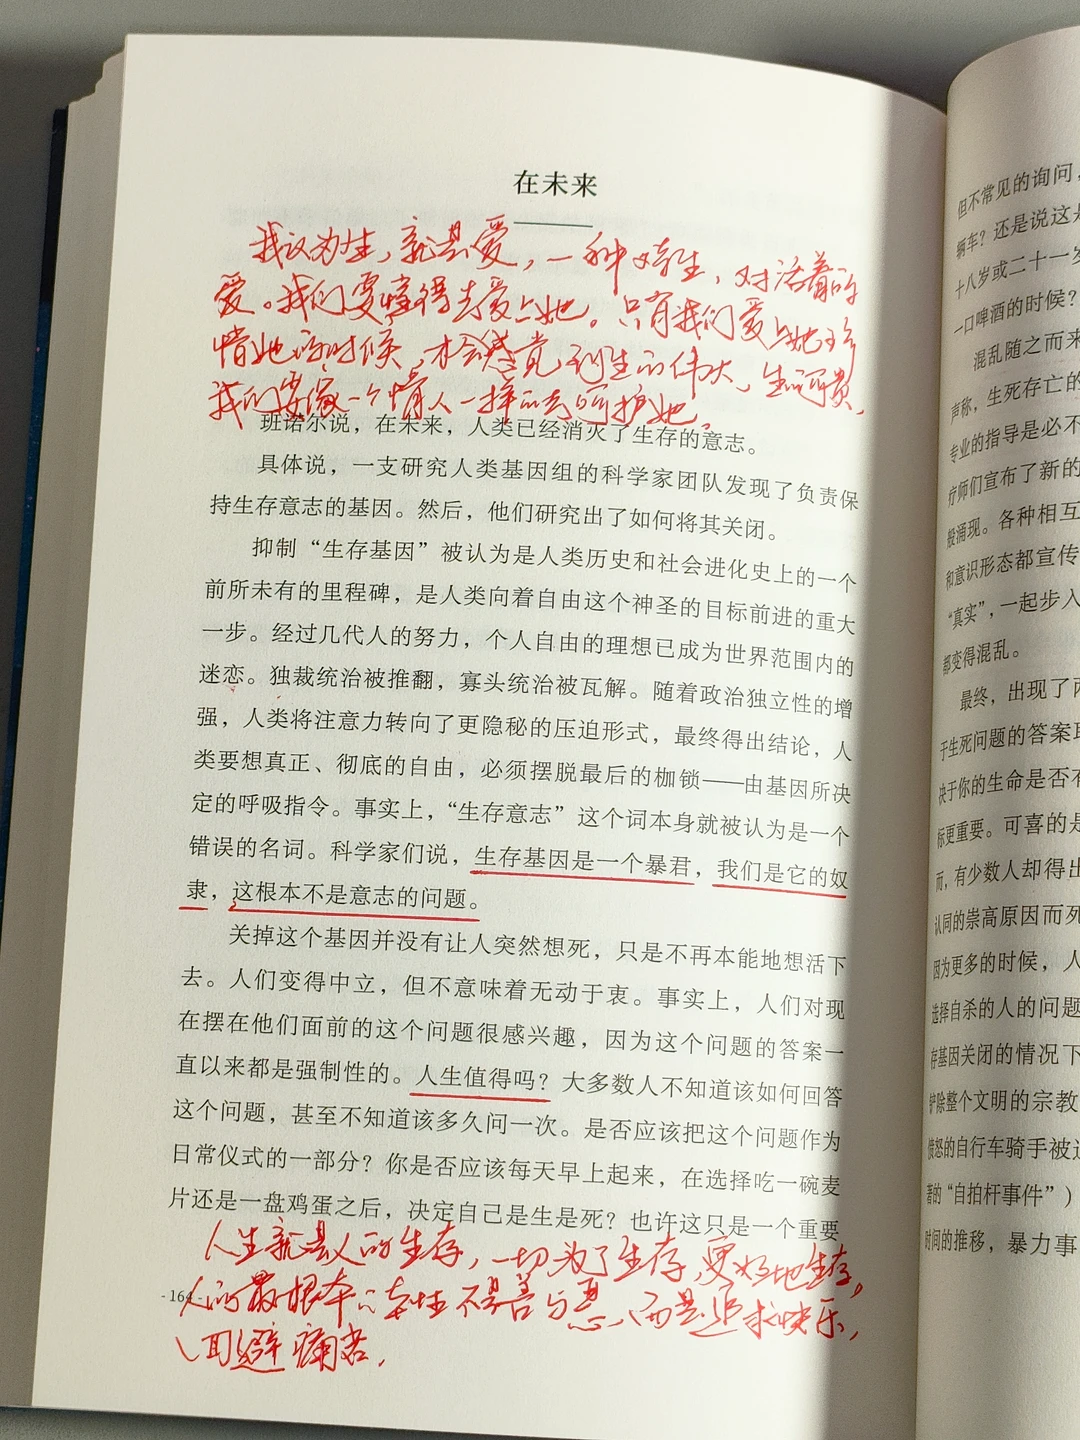 在未来
我认为生，就是爱，一种寄生，对活着的
爱。我们要懂得去爱上她。只有我们爱上她珍
惜她的时候，才会感觉到生的伟大、生的可贵，
我们要像一个情人一样的去呵护她。
班诺尔说，在未来，人类已经消灭了生存的意志。
具体说，一支研究人类基因组的科学家团队发现了负责保
持生存意志的基因。然后，他们研究出了如何将其关闭。
抑制“生存基因”被认为是人类历史和社会进化史上的一个
前所未有的里程碑，是人类向着自由这个神圣的目标前进的重大
一步。经过几代人的努力，个人自由的理想已成为世界范围内的
迷恋。独裁统治被推翻，寡头统治被瓦解。随着政治独立性的增
强，人类将注意力转向了更隐秘的压迫形式，最终得出结论，人
类要想真正、彻底的自由，必须摆脱最后的枷锁——由基因所决
定的呼吸指令。事实上，“生存意志”这个词本身就被认为是一个
错误的名词。科学家们说，生存基因是一个暴君，我们是它的奴
隶，这根本不是意志的问题。
关掉这个基因并没有让人突然想死，只是不再本能地想活下
去。人们变得中立，但不意味着无动于衷。事实上，人们对现
在摆在他们面前的这个问题很感兴趣，因为这个问题的答案一
直以来都是强制性的。人生值得吗？大多数人不知道该如何回答
这个问题，甚至不知道该多久问一次。是否应该把这个问题作为
日常仪式的一部分？你是否应该每天早上起来，在选择吃一碗麦
片还是一盘鸡蛋之后，决定自己是生是死？也许这只是一个重要
人生就是人的生存，一切为了生存，更好地生存，
人的最根本的本性不是善与恶、而是追求快乐，
回避痛苦。
- 164 -
但不常见的询问，
辆车？还是说这是
十八岁或二十一岁
一口啤酒的时候？
混乱随之而来
声称，生死存亡的
专业的指导是必不
疗师们宣布了新的
般涌现。各种相互
和意识形态都宣传
“真实”，一起步入
都变得混乱。
最终，出现了两
于生死问题的答案取
决于你的生命是否有
标更重要。可喜的是
而，有少数人却得出
认同的崇高原因而死
因为更多的时候，人
选择自杀的人的问题
存基因关闭的情况下
铲除整个文明的宗教
愤怒的自行车骑手被迫
著的“自拍杆事件”）
时间的推移，暴力事